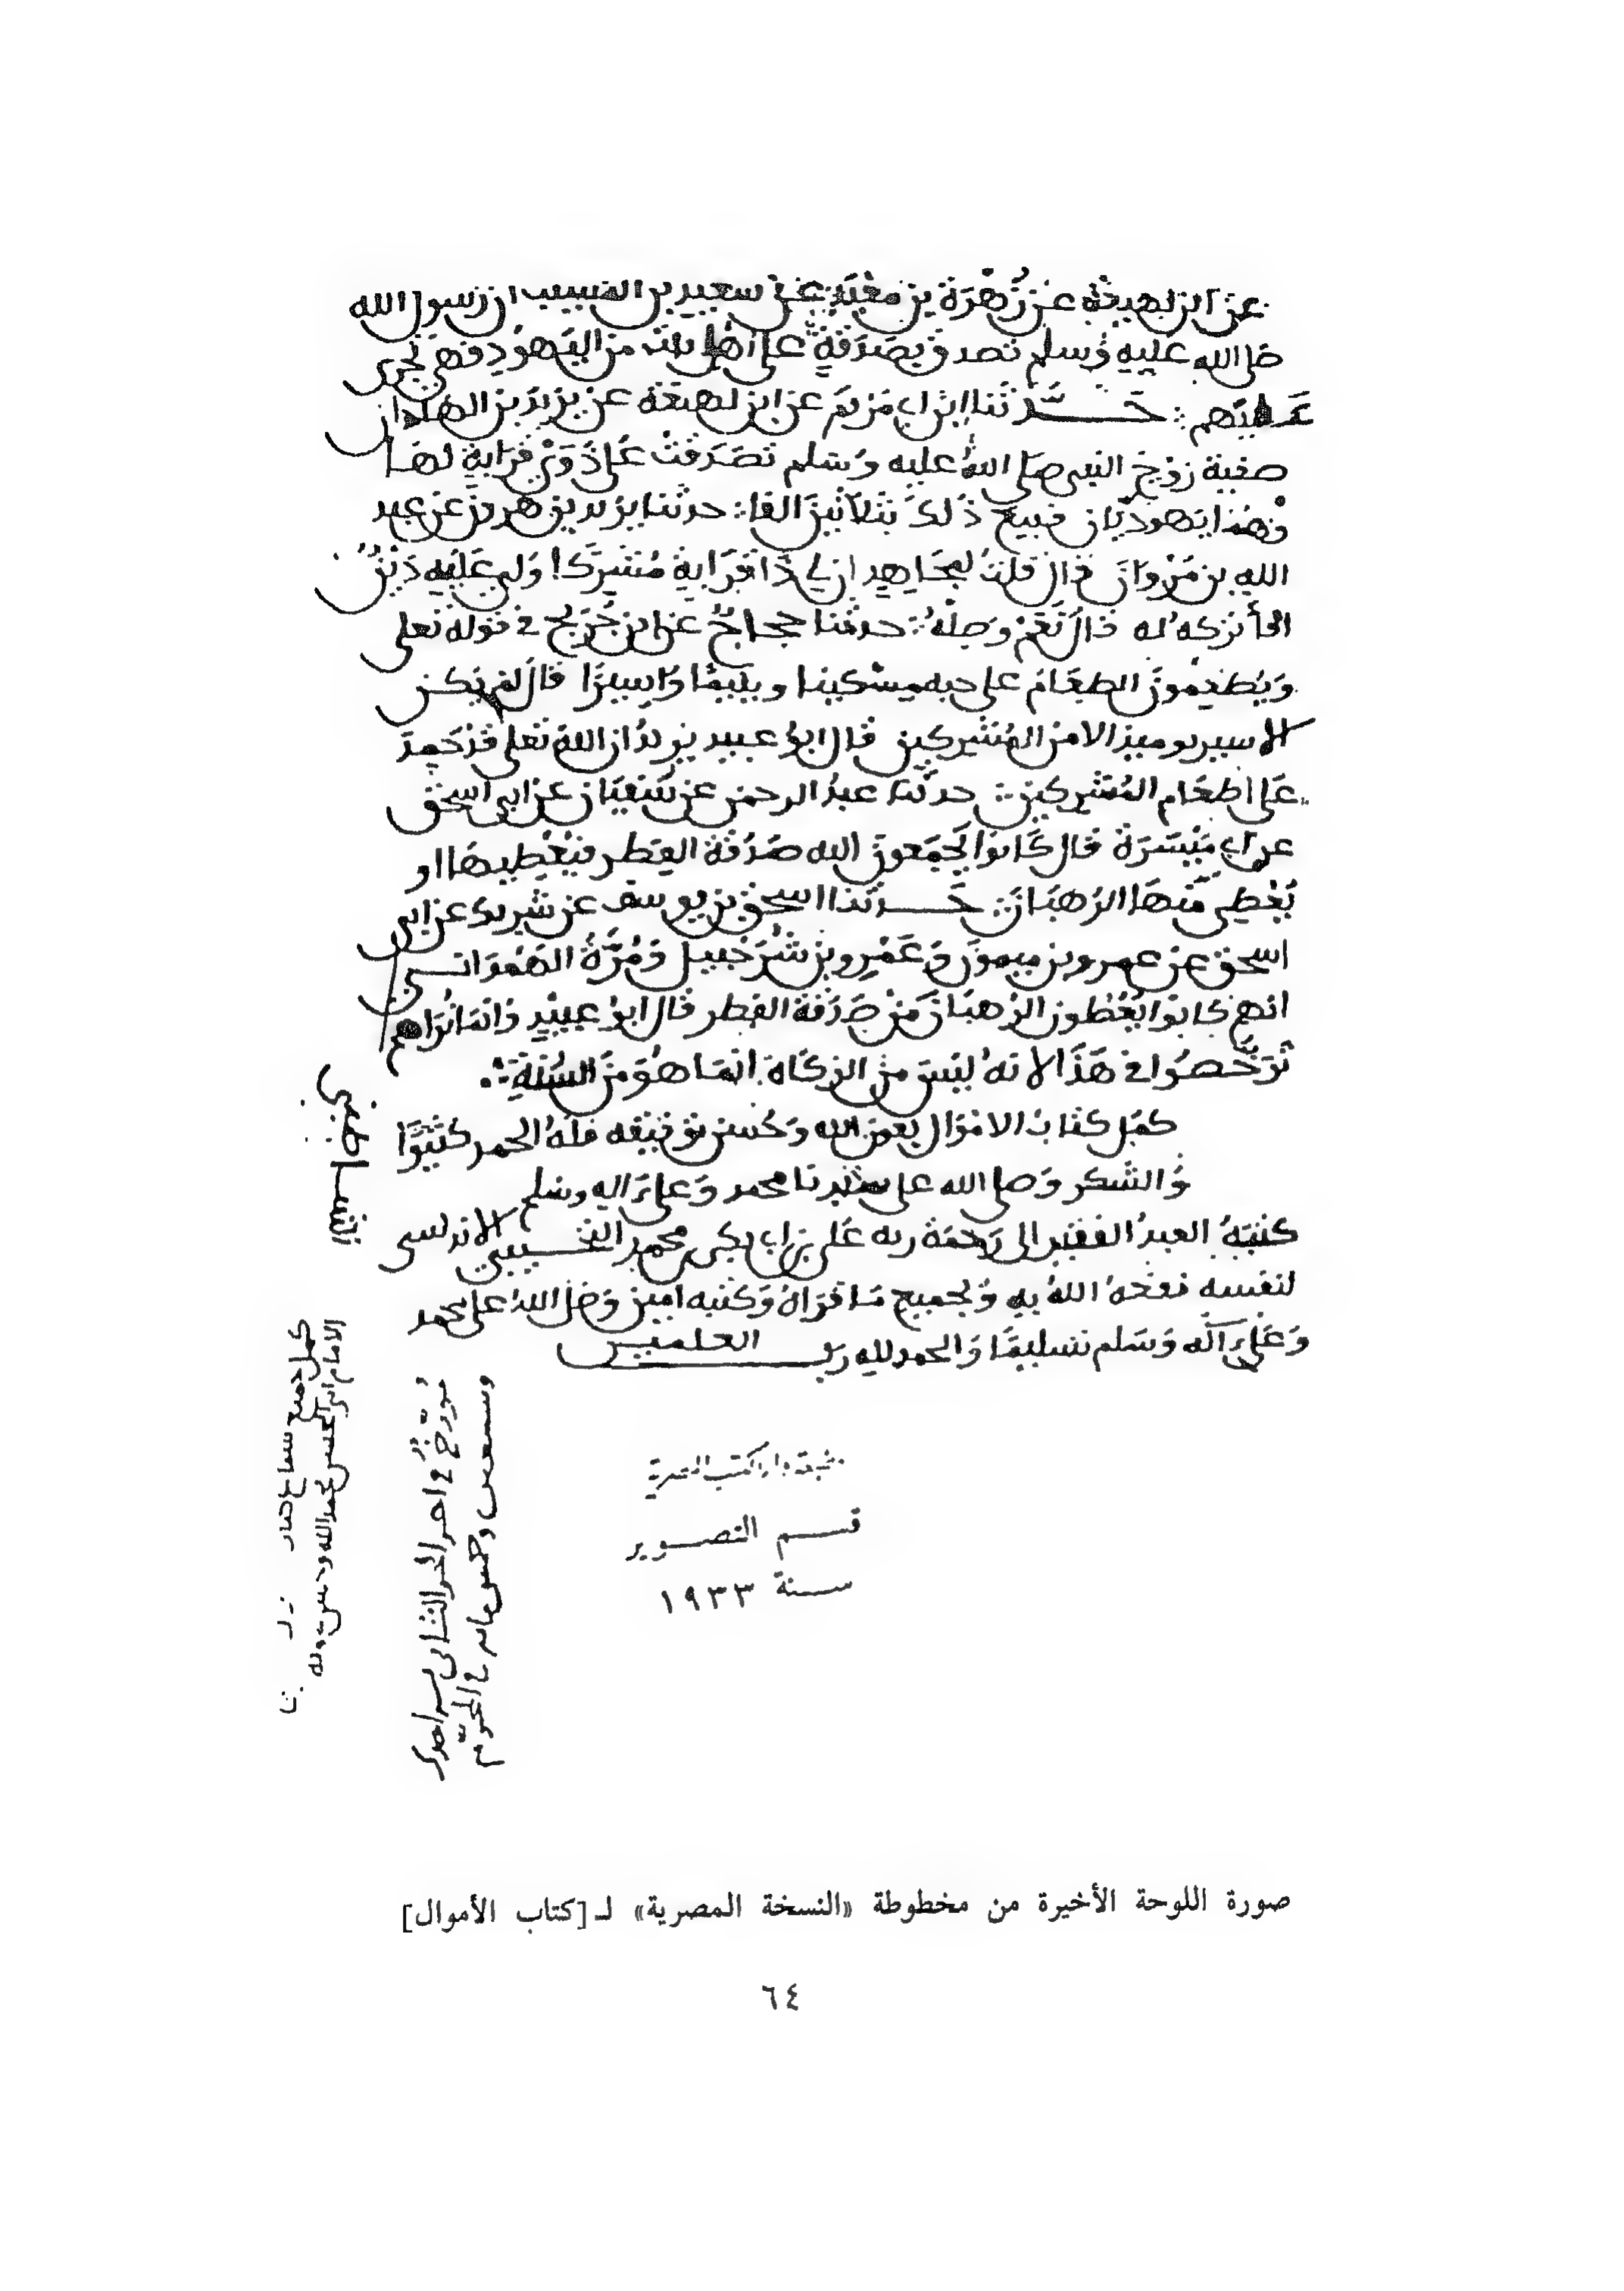 عن ابن لهيعة عن زُهْرَة بن معبد عن سعيد بن المسيب ان رسول الله
صلى الله عليه وسلم تصدق بصدقة على اهل بيت من اليهود فهى تجرى
عليهم حدثنا ابن ابى مريم عن ابن لهيعة عن يزيد بن الهاد ان
صفية زوج النبى صلى الله عليه وسلم تصدقت على ذوى قرابة لها
فهما يهوديان فبيع ذلك بثلاثين الفا حدثنا يزيد بن هرون عن عبد
الله بن مروان قال قلت لمجاهد ان لى ذا قرابة مشركا ولى عليه دين
أأتركه له قال نعم وصله حدثنا حجاج عن ابن جريج فى قوله تعلى
ويطعمون الطعام على حبه مسكينا ويتيما واسيرا قال لم يكن
الاسير يوميذ الا من المشركين قال ابو عبيد يريد ان الله تعلى قد حمد
على اطعام المشركين حدثنا عبد الرحمن عن سفيان عن ابى اسحق
عن ابى ميسرة قال كانوا يجمعون اليه صدقة الفطر فيعطيها او
يعطى منها الرهبان حدثنا اسحق بن يوسف عن شريك عن ابى
اسحق عن عمرو بن ميمون وعمرو بن شرحبيل ومرة الهمدانى
انهم كانوا يعطون الرهبان من صدقة الفطر قال ابو عبيد وانما نراهم
ترخصوا فى هذا لانه ليس من الزكاة انما هو من السنة
كمل كتاب الاموال بعون الله وحسن توفيقه فله الحمد كثيرا
والشكر وصلى الله على سيدنا محمد وعلى اله وسلم
كتبه العبد الفقير الى رحمة ربه على بن ابى بكر محمد التجيبى الاندلسى
لنفسه نفعه الله به وبجميع ما قراه وكتبه امين وصلى الله على محمد
وعلى آله وسلم تسليما والحمد لله رب العلمين
دار الكتب المصرية
قسم التصوير
سنة ١٩٣٣
صورة اللوحة الأخيرة من مخطوطة «النسخة المصرية» لـ [كتاب الأموال]
٦٤